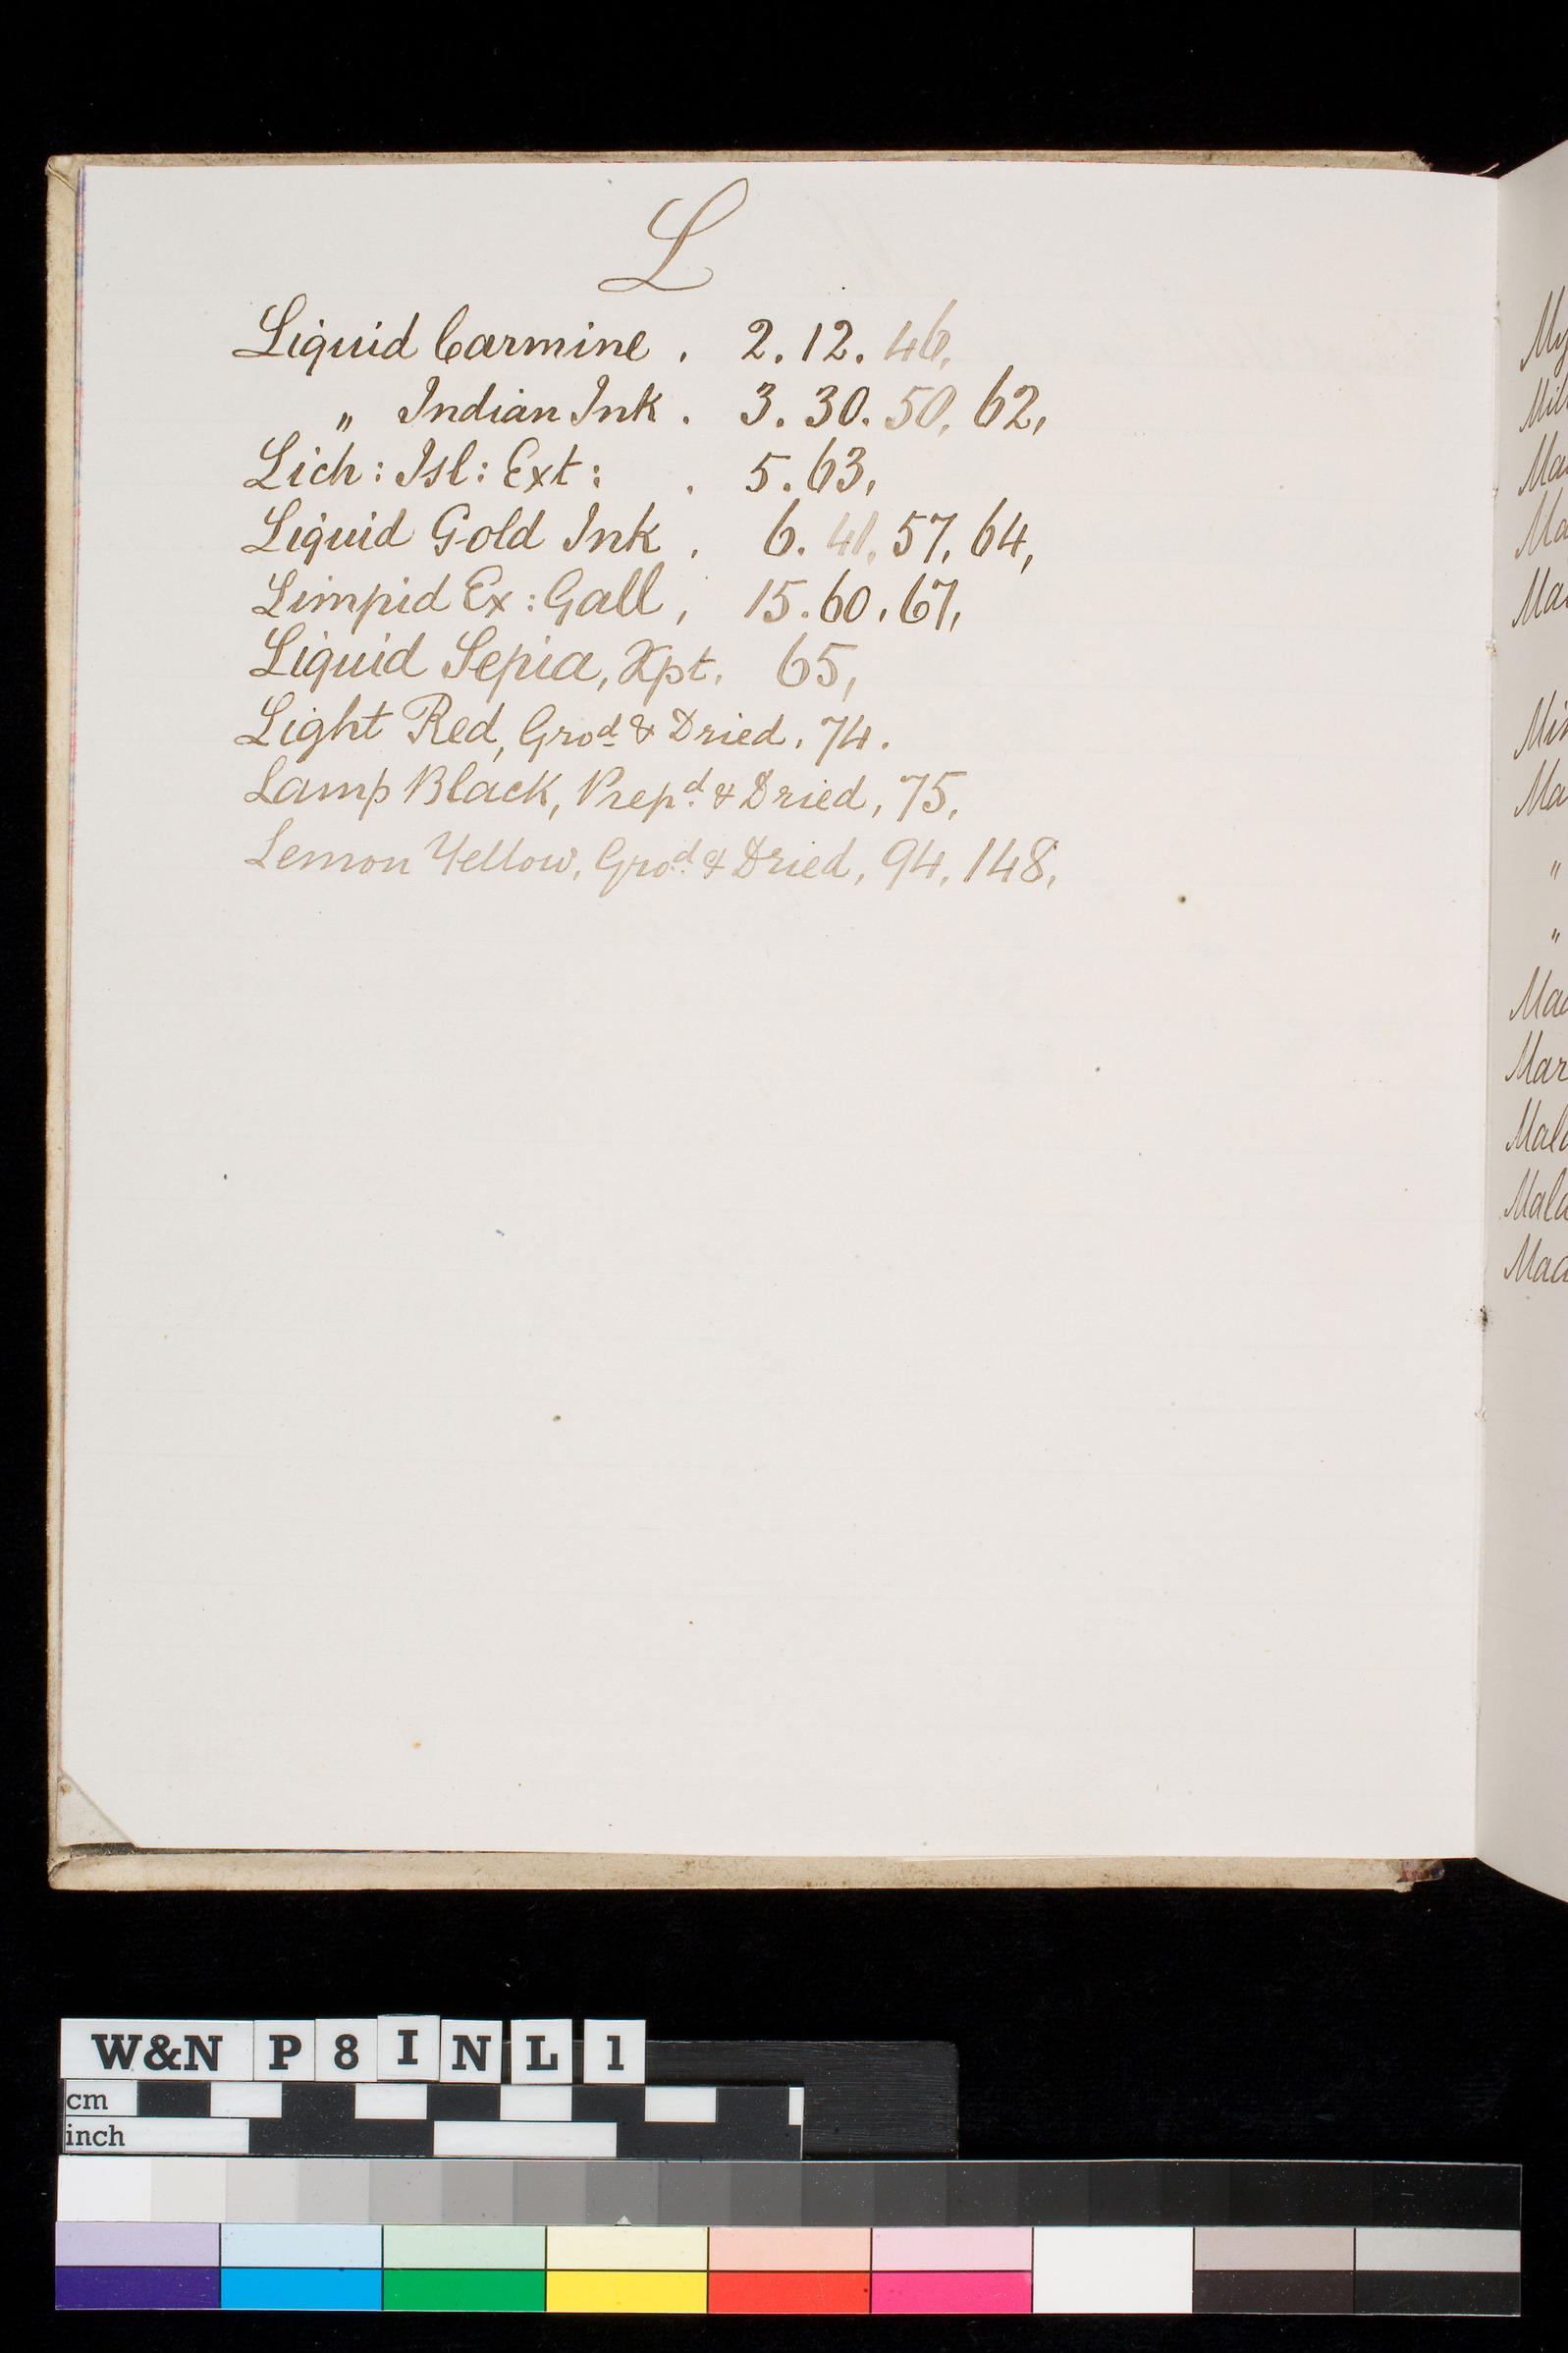 L
Liquid Carmine . 2. 12. 46,
„ Indian Ink . 3. 30. 50, 62,
Lich: Isl: Ext: . 5. 63,
Liquid Gold Ink . 6. 41, 57, 64,
Limpid Ex: Gall , 15. 60. 67,
Liquid Sepia, Xpt. 65,
Light Red, Grod & Dried. 74.
Lamp Black, Prepd & Dried, 75,
Lemon Yellow, Grod & Dried, 94, 148,
My
Mil
Ma
Ma
Min
Ma
„
„
Mar
Mala
W&N P 8 I N L 1
cm
inch